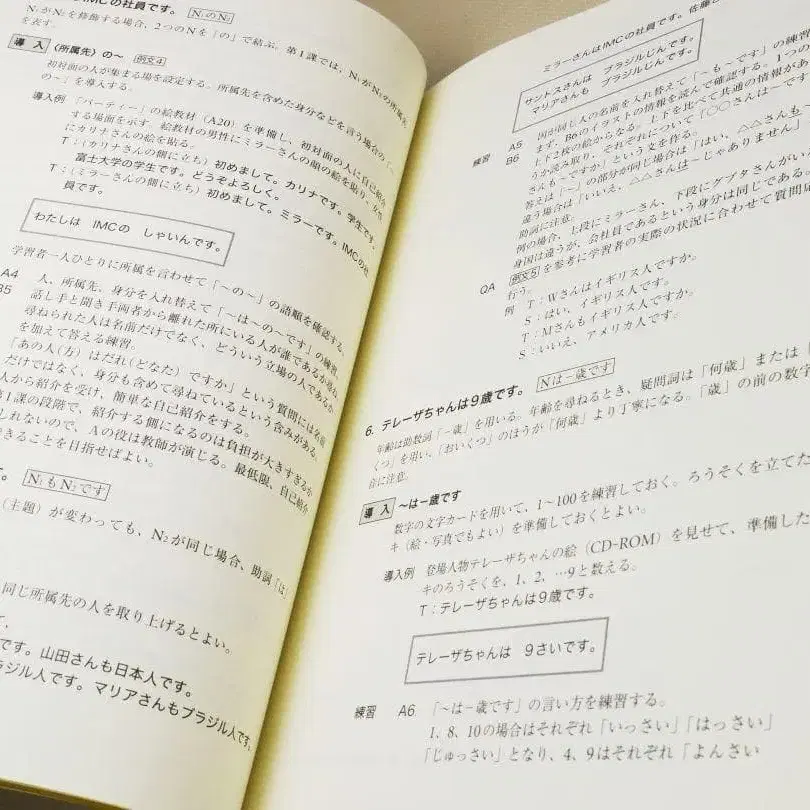 IMCの社員です。 N₁のN₂
N₁がN₂を修飾する場合、2つのNを「の」で結ぶ。第1課では、N₁がN₂の所属先
を表す。
導入 〈所属先〉の〜 例文4
初対面の人が集まる場を設定する。所属先を含めた身分などを言う場合の「〜
の〜」を導入する。
導入例 「パーティー」の絵教材(A20)を準備し、初対面の人に自己紹介
する場面を示す。絵教材の男性にミラーさんの顔の絵を貼り、女性
にカリナさんの絵を貼る。
T：(カリナさんの側に立ち)初めまして。カリナです。学生です。
富士大学の学生です。どうぞよろしく。
T：(ミラーさんの側に立ち)初めまして。ミラーです。IMCの社
員です。
わたしは IMCの しゃいんです。
学習者一人ひとりに所属を言わせて「〜の〜」の語順を確認する。
A4 人、所属先、身分を入れ替えて「〜は〜の〜です」の練習。
B5 話し手と聞き手両者から離れた所にいる人が誰であるか尋ね、
尋ねられた人は名前だけでなく、どういう立場の人であるか
を加えて答える練習。
「あの人(方)はだれ(どなた)ですか」という質問には名前
だけではなく、身分も含めて尋ねているという含みがある。
人から紹介を受け、簡単な自己紹介をする。
第1課の段階で、紹介する側になるのは負担が大きすぎるか
しれないので、Aの役は教師が演じる。最低限、自己紹介
できることを目指せばよい。
す。 N₁もN₂です
(主題)が変わっても、N₂が同じ場合、助詞「は」
同じ所属先の人を取り上げるとよい。
です。山田さんも日本人です。
ラジル人です。マリアさんもブラジル人です。
ミラーさんはIMCの社員です。佐藤
サントスさんは ブラジルじんです。
マリアさんも ブラジルじんです。
練習 A5 国が同じ人の名前を入れ替えて「〜も〜です」の練習
B6 まず、B6のイラストの情報を読んで確認する。1つの
上下2枚の絵からなる。上下を比べて共通の情報があ
うか読み取り、それぞれについて「○○さんは〜です
さんも〜ですか」という文を作る。
答えは「〜」の部分が同じ場合は「はい、△△さんも〜
違う場合は「いいえ、△△さんは〜じゃありません」
助詞に注意。
例の場合、上段にミラーさん、下段にグプタさんがい
身国は違うが、会社員であるという身分は同じである。
QA 例文5を参考に学習者の実際の状況に合わせて質問応
行う。
例 T：Wさんはイギリス人ですか。
S：はい、イギリス人です。
T：Mさんもイギリス人ですか。
S：いいえ、アメリカ人です。
6. テレーザちゃんは9歳です。 Nは－歳です
年齢は助数詞「－歳」を用いる。年齢を尋ねるとき、疑問詞は「何歳」または「
くつ」を用い、「おいくつ」のほうが「何歳」より丁寧になる。「歳」の前の数字
音に注意。
導入 〜は－歳です
数字の文字カードを用いて、1〜100を練習しておく。ろうそくを立てた
キ(絵・写真でもよい)を準備しておくとよい。
導入例 登場人物テレーザちゃんの絵(CD-ROM)を見せて、準備した
キのろうそくを、1、2、…9と数える。
T：テレーザちゃんは9歳です。
テレーザちゃんは 9さいです。
練習 A6 「〜は－歳です」の言い方を練習する。
1、8、10の場合はそれぞれ「いっさい」「はっさい」
「じゅっさい」となり、4、9はそれぞれ「よんさい